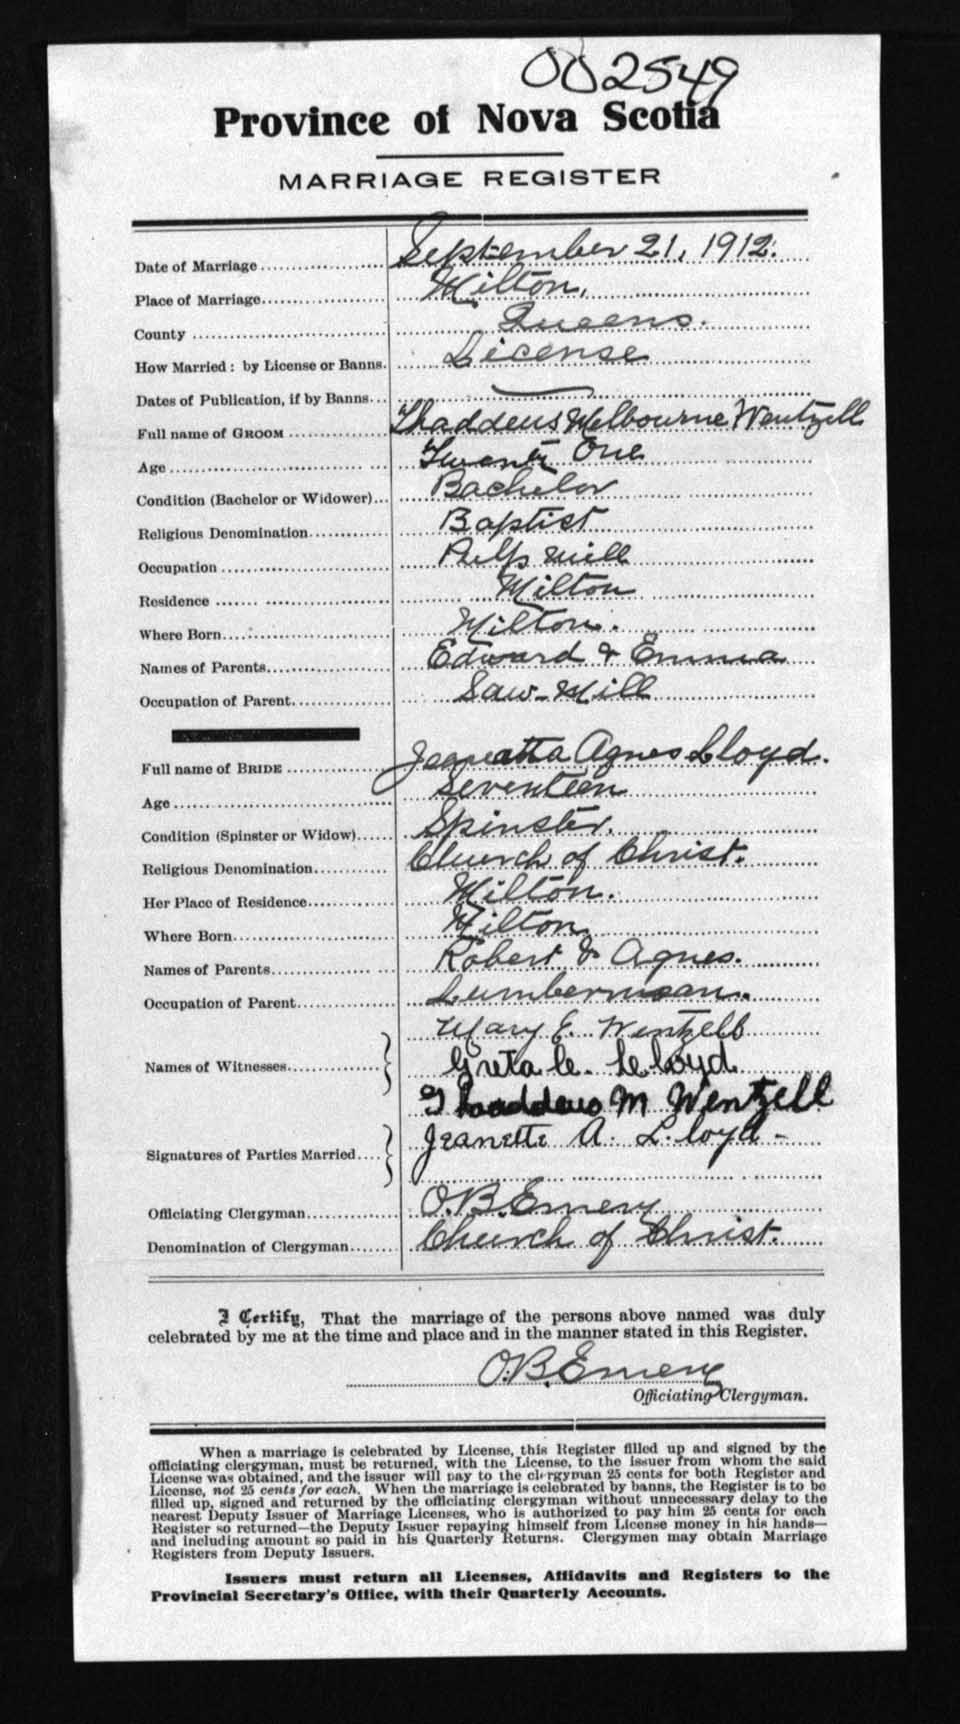 002549
Province of Nova Scotia
MARRIAGE REGISTER
Date of Marriage September 21, 1912.
Place of Marriage Milton,
County Queens.
How Married: by License or Banns. License
Dates of Publication, if by Banns —
Full name of GROOM Thaddeus Melbourne Wentzell
Age Twenty One
Condition (Bachelor or Widower) Bachelor
Religious Denomination Baptist
Occupation Pulp Mill
Residence Milton
Where Born Milton.
Names of Parents Edward & Emma
Occupation of Parent Saw-Mill
Full name of BRIDE Jeanetta Agnes Lloyd.
Age Seventeen
Condition (Spinster or Widow) Spinster.
Religious Denomination Church of Christ.
Her Place of Residence Milton.
Where Born Milton
Names of Parents Robert & Agnes.
Occupation of Parent Lumberman.
Mary E. Wentzell
Names of Witnesses Greta C. Lloyd
Thaddeus M Wentzell
Signatures of Parties Married Jeanette A. Lloyd -
Officiating Clergyman O.B. Emery
Denomination of Clergyman Church of Christ.
I Certify, That the marriage of the persons above named was duly
celebrated by me at the time and place and in the manner stated in this Register.
O.B. Emery
Officiating Clergyman.
When a marriage is celebrated by License, this Register filled up and signed by the
officiating clergyman, must be returned, with the License, to the issuer from whom the said
License was obtained, and the issuer will pay to the clergyman 25 cents for both Register and
License, not 25 cents for each. When the marriage is celebrated by banns, the Register is to be
filled up, signed and returned by the officiating clergyman without unnecessary delay to the
nearest Deputy Issuer of Marriage Licenses, who is authorized to pay him 25 cents for each
Register so returned—the Deputy Issuer repaying himself from License money in his hands—
and including amount so paid in his Quarterly Returns. Clergymen may obtain Marriage
Registers from Deputy Issuers.
Issuers must return all Licenses, Affidavits and Registers to the
Provincial Secretary's Office, with their Quarterly Accounts.